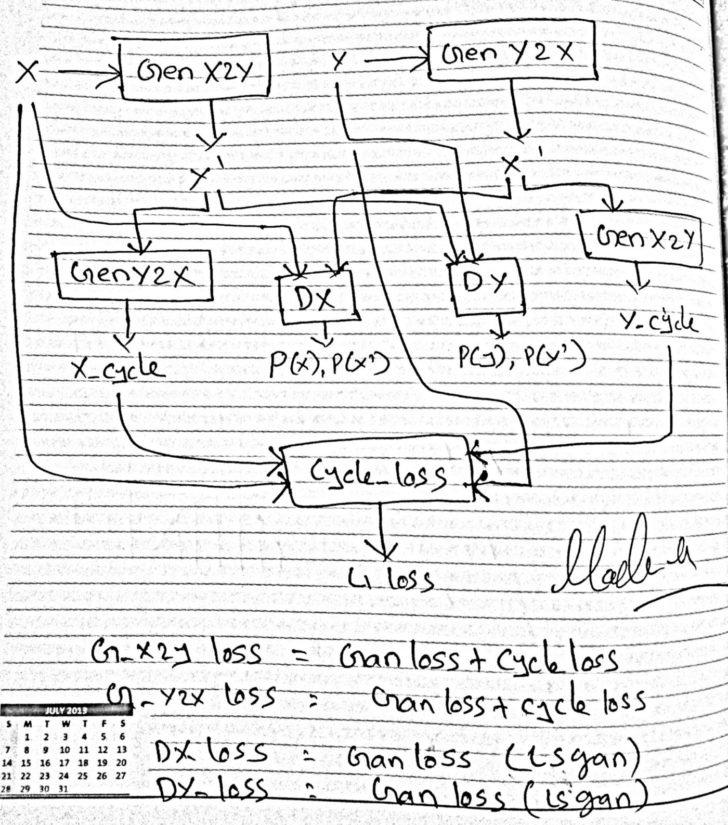 X Gen X2Y Y Gen Y2X
Y' X'
Gen Y2X DX DY Gen X2Y
X_cycle P(x), P(x') P(y), P(y') Y_cycle
Cycle_loss
L1 loss
G_X2Y loss = Gan loss + Cycle loss
G_Y2X loss = Gan loss + cycle loss
DX loss = Gan loss (lsgan)
DY_loss = Gan loss (lsgan)
JULY 2019
S M T W T F S
1 2 3 4 5 6
7 8 9 10 11 12 13
14 15 16 17 18 19 20
21 22 23 24 25 26 27
28 29 30 31